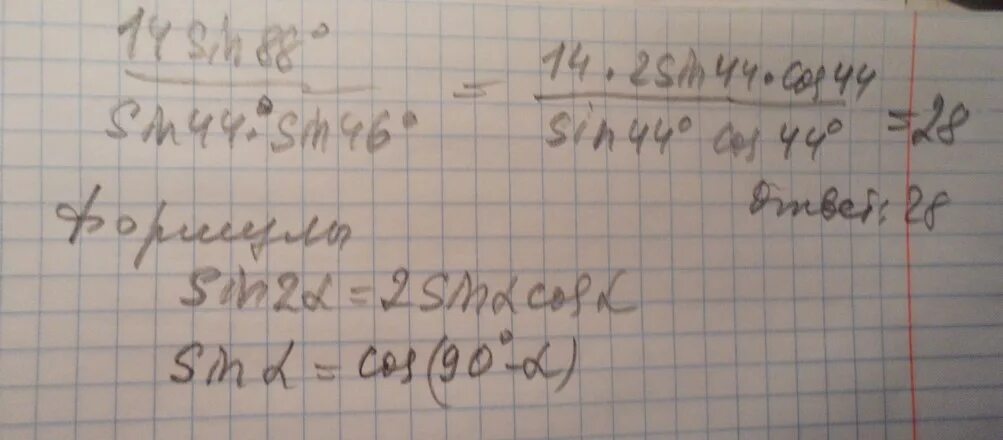 14 sin 88° / sin 44° · sin 46° = 14 · 2 sin 44 · cos 44 / sin 44° cos 44° = 28
Ответ: 28
Формулы
sin 2α = 2 sin α cos α
sin α = cos (90° - α)